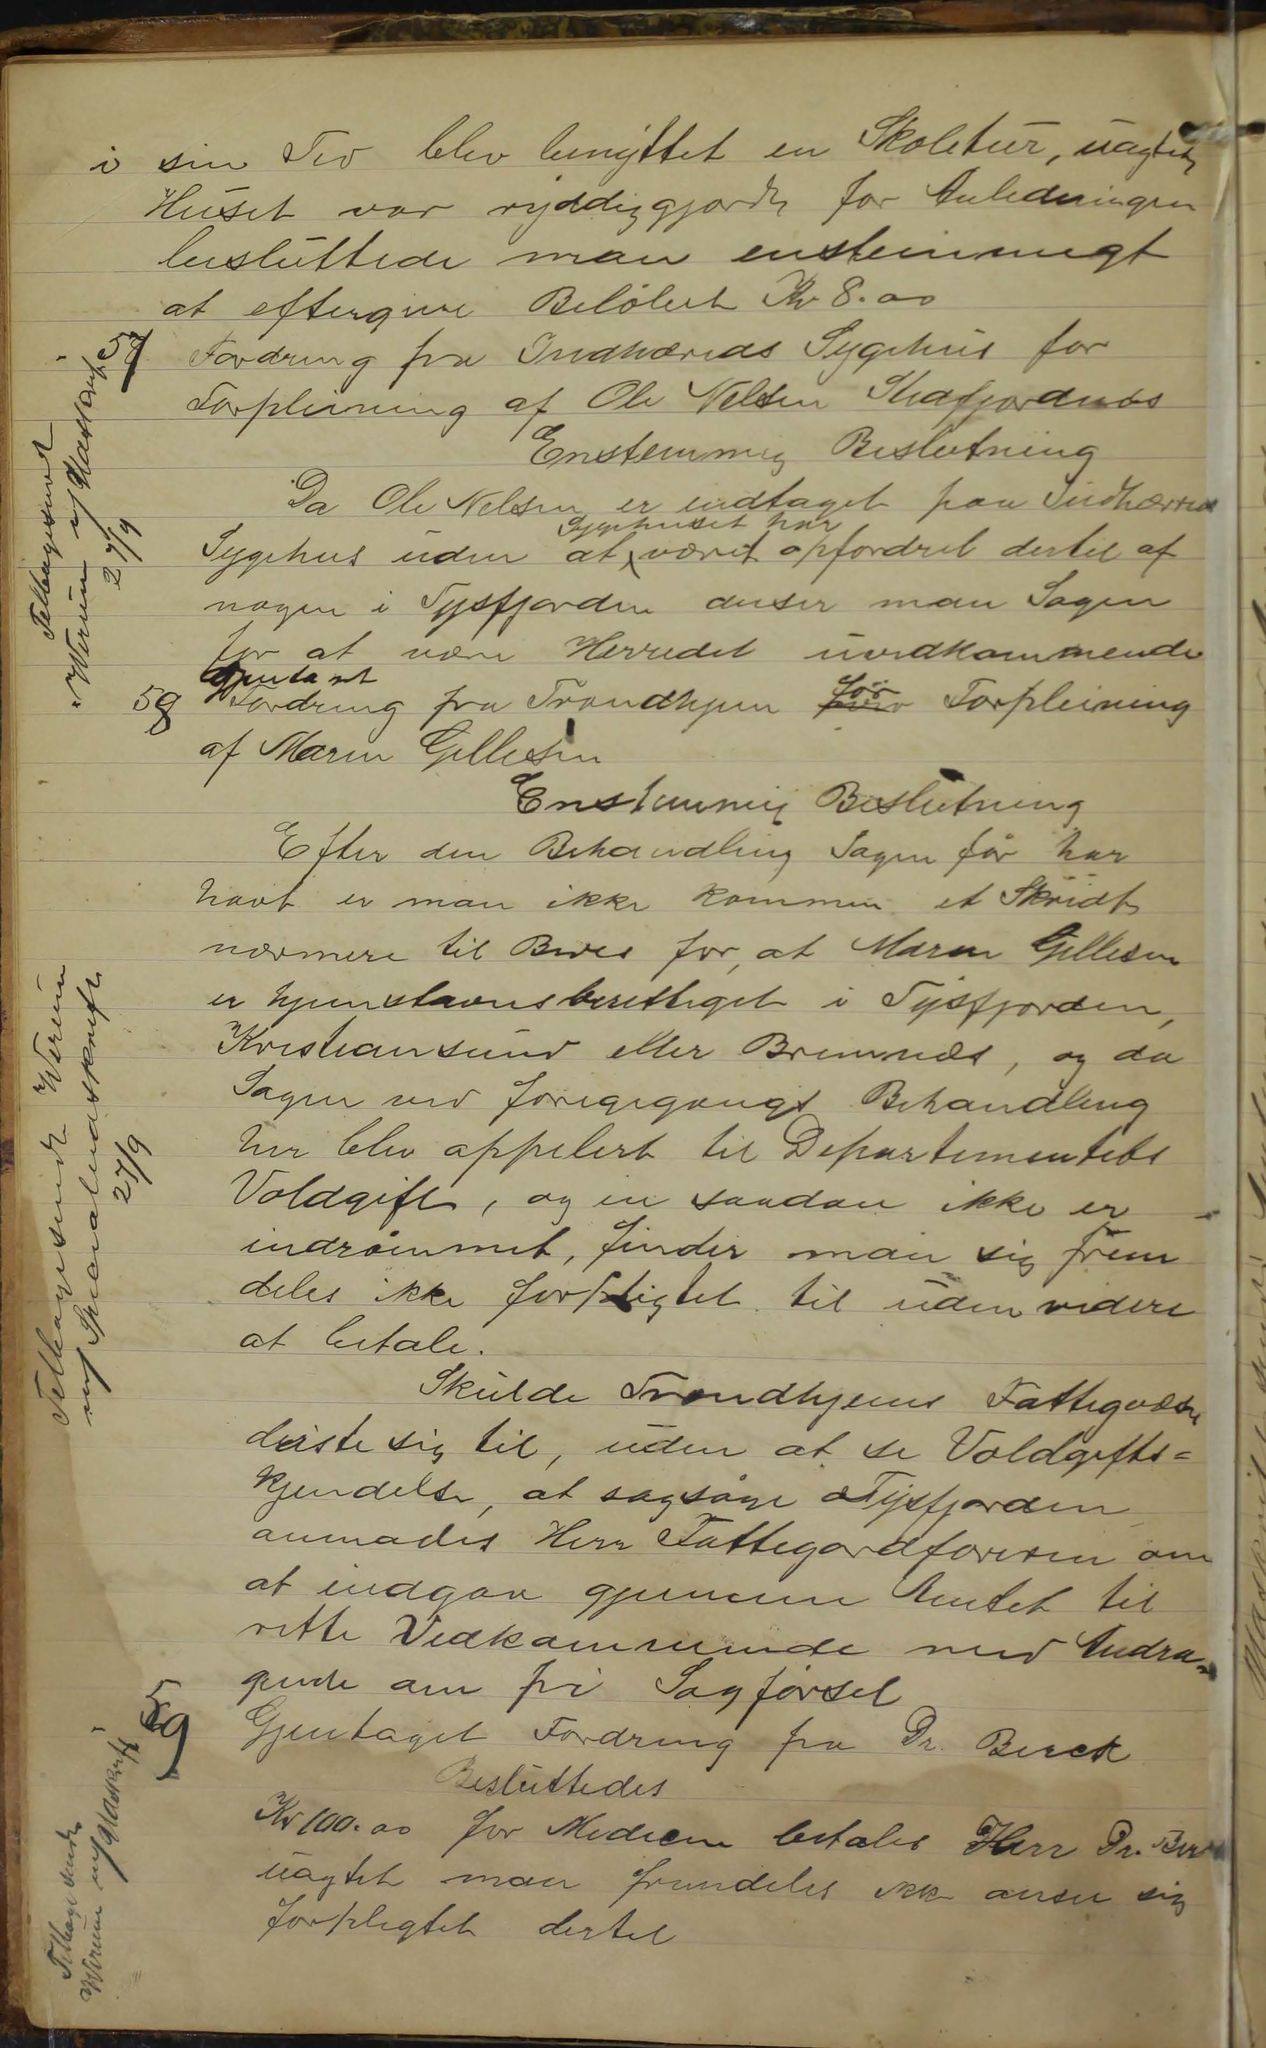 i sin Tid blev benyttet en Skoletur, uagtet
Huset var ryddiggjordt for Anledningen
besluttede man enstemmigt
at eftergive Beløbet Kr 8.00
57 Fordring fra Indhæreds Sygehus for
Forpleining af Ole Nelsen
Enstemmig Beslutning
Da Ole Nelsen er indtaget paa Indhærred
Sygehuset har
Sygehus uden at været opfordret dertil af
nogen i Tysfjorden anser man Sagen
for at være Herredet uvedkommende
Gjentaet
58 Fordring fra Trondhjem for Forpleining
af Maren Gellesen
Enstemmig Beslutning
Efter den Behandling Sagen før har
havt er man ikke kommen et Skridt
nærmere til Bevis for, at Maren Gellesen
er hjemstavnsberettiget i Tysfjorden,
Kristiansund eller Bremnæs, og da
Sagen ved foregegangt Behandling
her blev appelert til Departementets
Voldgift, og en saadan ikke er
indrømmet, finder man sig frem
deles ikke forpligtet til uden videre
at betale.
Skulde Trondhjems Fattigvæsen
driste sig til, uden at se Voldgifts=
kjendelse, at sagsøge Tysfjorden
anmodes Herr Fattigordforeren om
at indgaa gjennem Amtet til
rette Vedkommende med Andra-
gende om fri Sagførsel
59 Gjentaget Fordring fra Dr. Berck
Besluttedes
Kr 100.00 for Medicin betales Herr Dr. Ber
uagtet man fremdeles ikke anser sig
forpligtet dertil
Tilbagesendt
Werum m/Udskrift
27/9
Tilbagesendt Werum
m/Specialudskrift
27/9
Tilbagesendt
Werum m/Udskrift